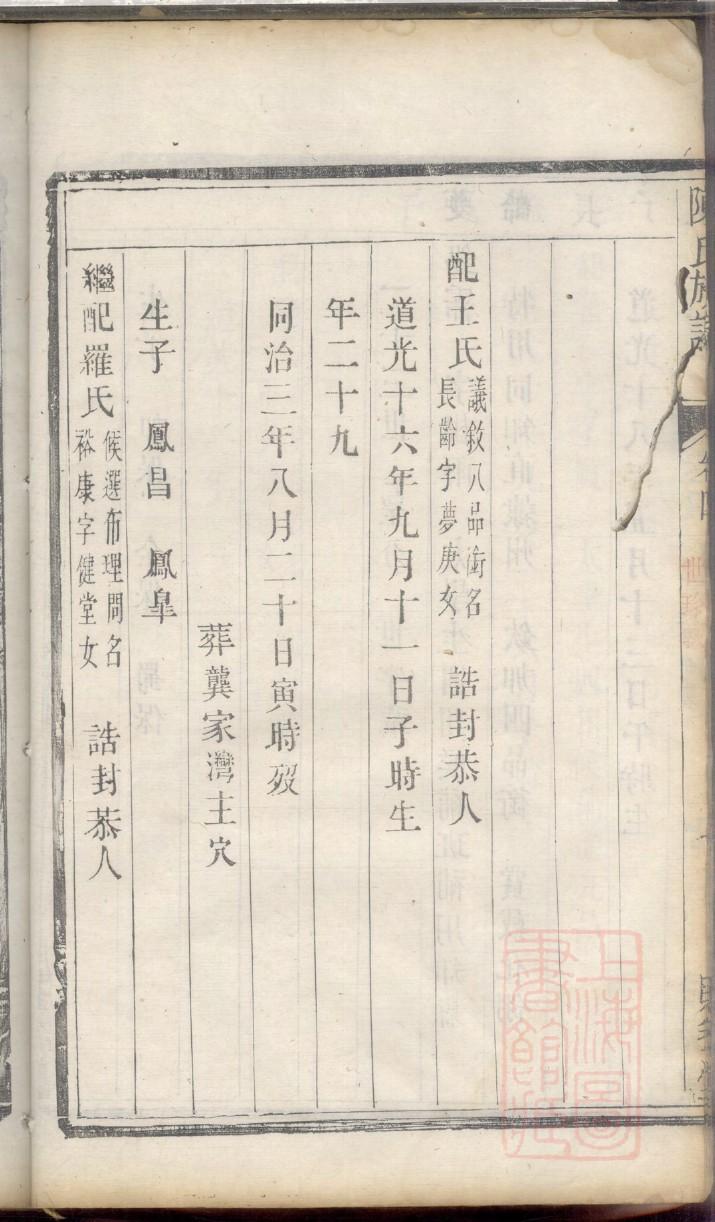 陳氏族譜
配王氏 議敘八品銜名長齡字夢庚女 誥封恭人
道光十六年九月十一日子時生
年二十九
同治三年八月二十日寅時歿
葬龔家灣主穴
生子 鳳昌 鳳臯
繼配羅氏 候選布理問名裕康字健堂女 誥封恭人
上海圖
書館藏